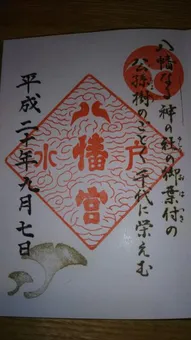 八幡乃神の杜の御葉付の
公孫樹のごとく千代に栄えむ
水戸
八幡宮
平成二十年九月七日